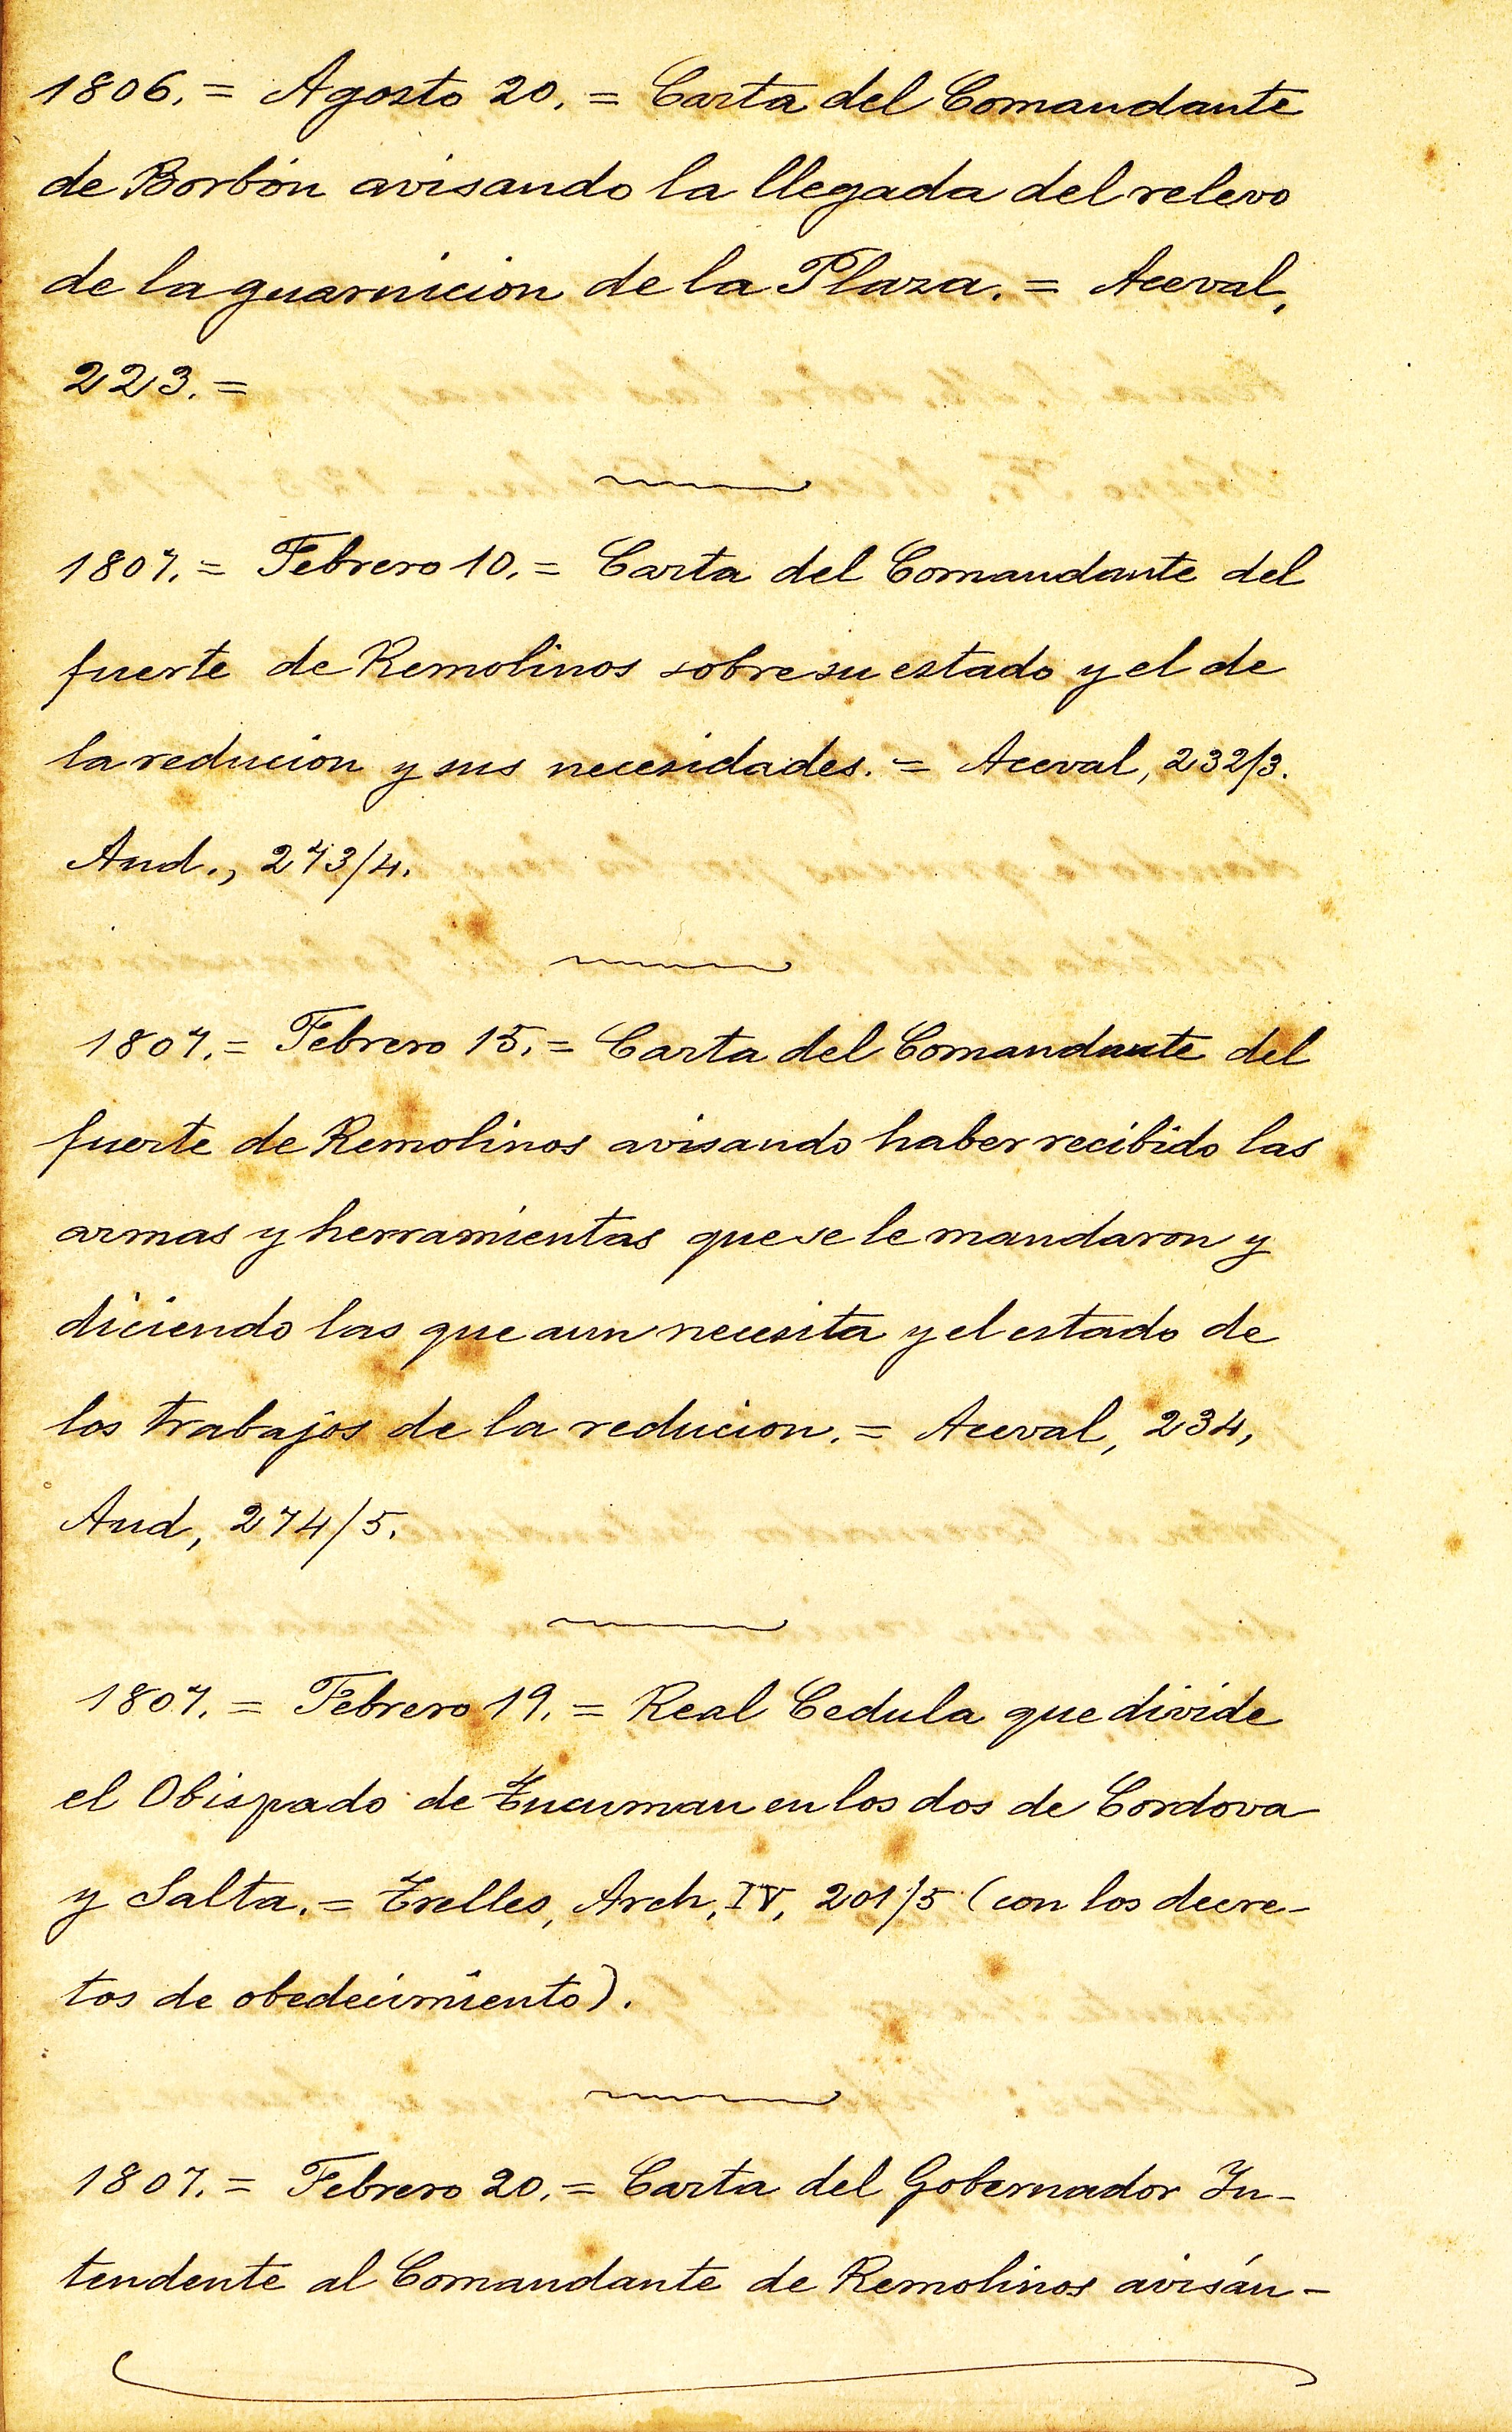 1806. = Agosto 20. = Carta del Comandante
de Borbón avisando la llegada del relevo
de la guarnicion de la Plaza. = Aceval,
223. =
1807. = Febrero 10. = Carta del Comandante del
fuerte de Remolinos sobre su estado y el de
la reducion y sus necesidades. = Aceval, 232/3.
Aud., 273/4.
1807. = Febrero 15. = Carta del Comandante del
fuerte de Remolinos avisando haber recibido las
armas y herramientas que se le mandaron y
diciendo las que aun necesita y el estado de
los trabajos de la reducion. = Aceval, 234,
Aud, 274/5.
1807. = Febrero 19. = Real Cedula que divide
el Obispado de Tucuman en los dos de Cordova
y Salta. = Trelles, Arch, IV, 201/5 (con los decre-
tos de obedecimiento).
1807. = Febrero 20. = Carta del Gobernador In-
tendente al Comandante de Remolinos avisán-